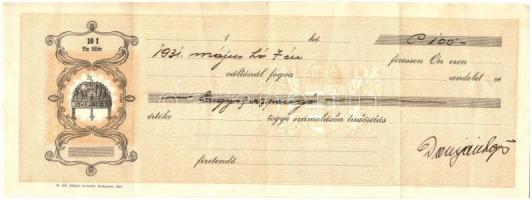 10 f
Tíz fillér
1 hó P 100.-
1931. május hó 7 én fizessen Ön ezen
váltónál fogva rendelet re
Egyszáz pengő
értéke tegye számolásba tudósítás
fizetendő